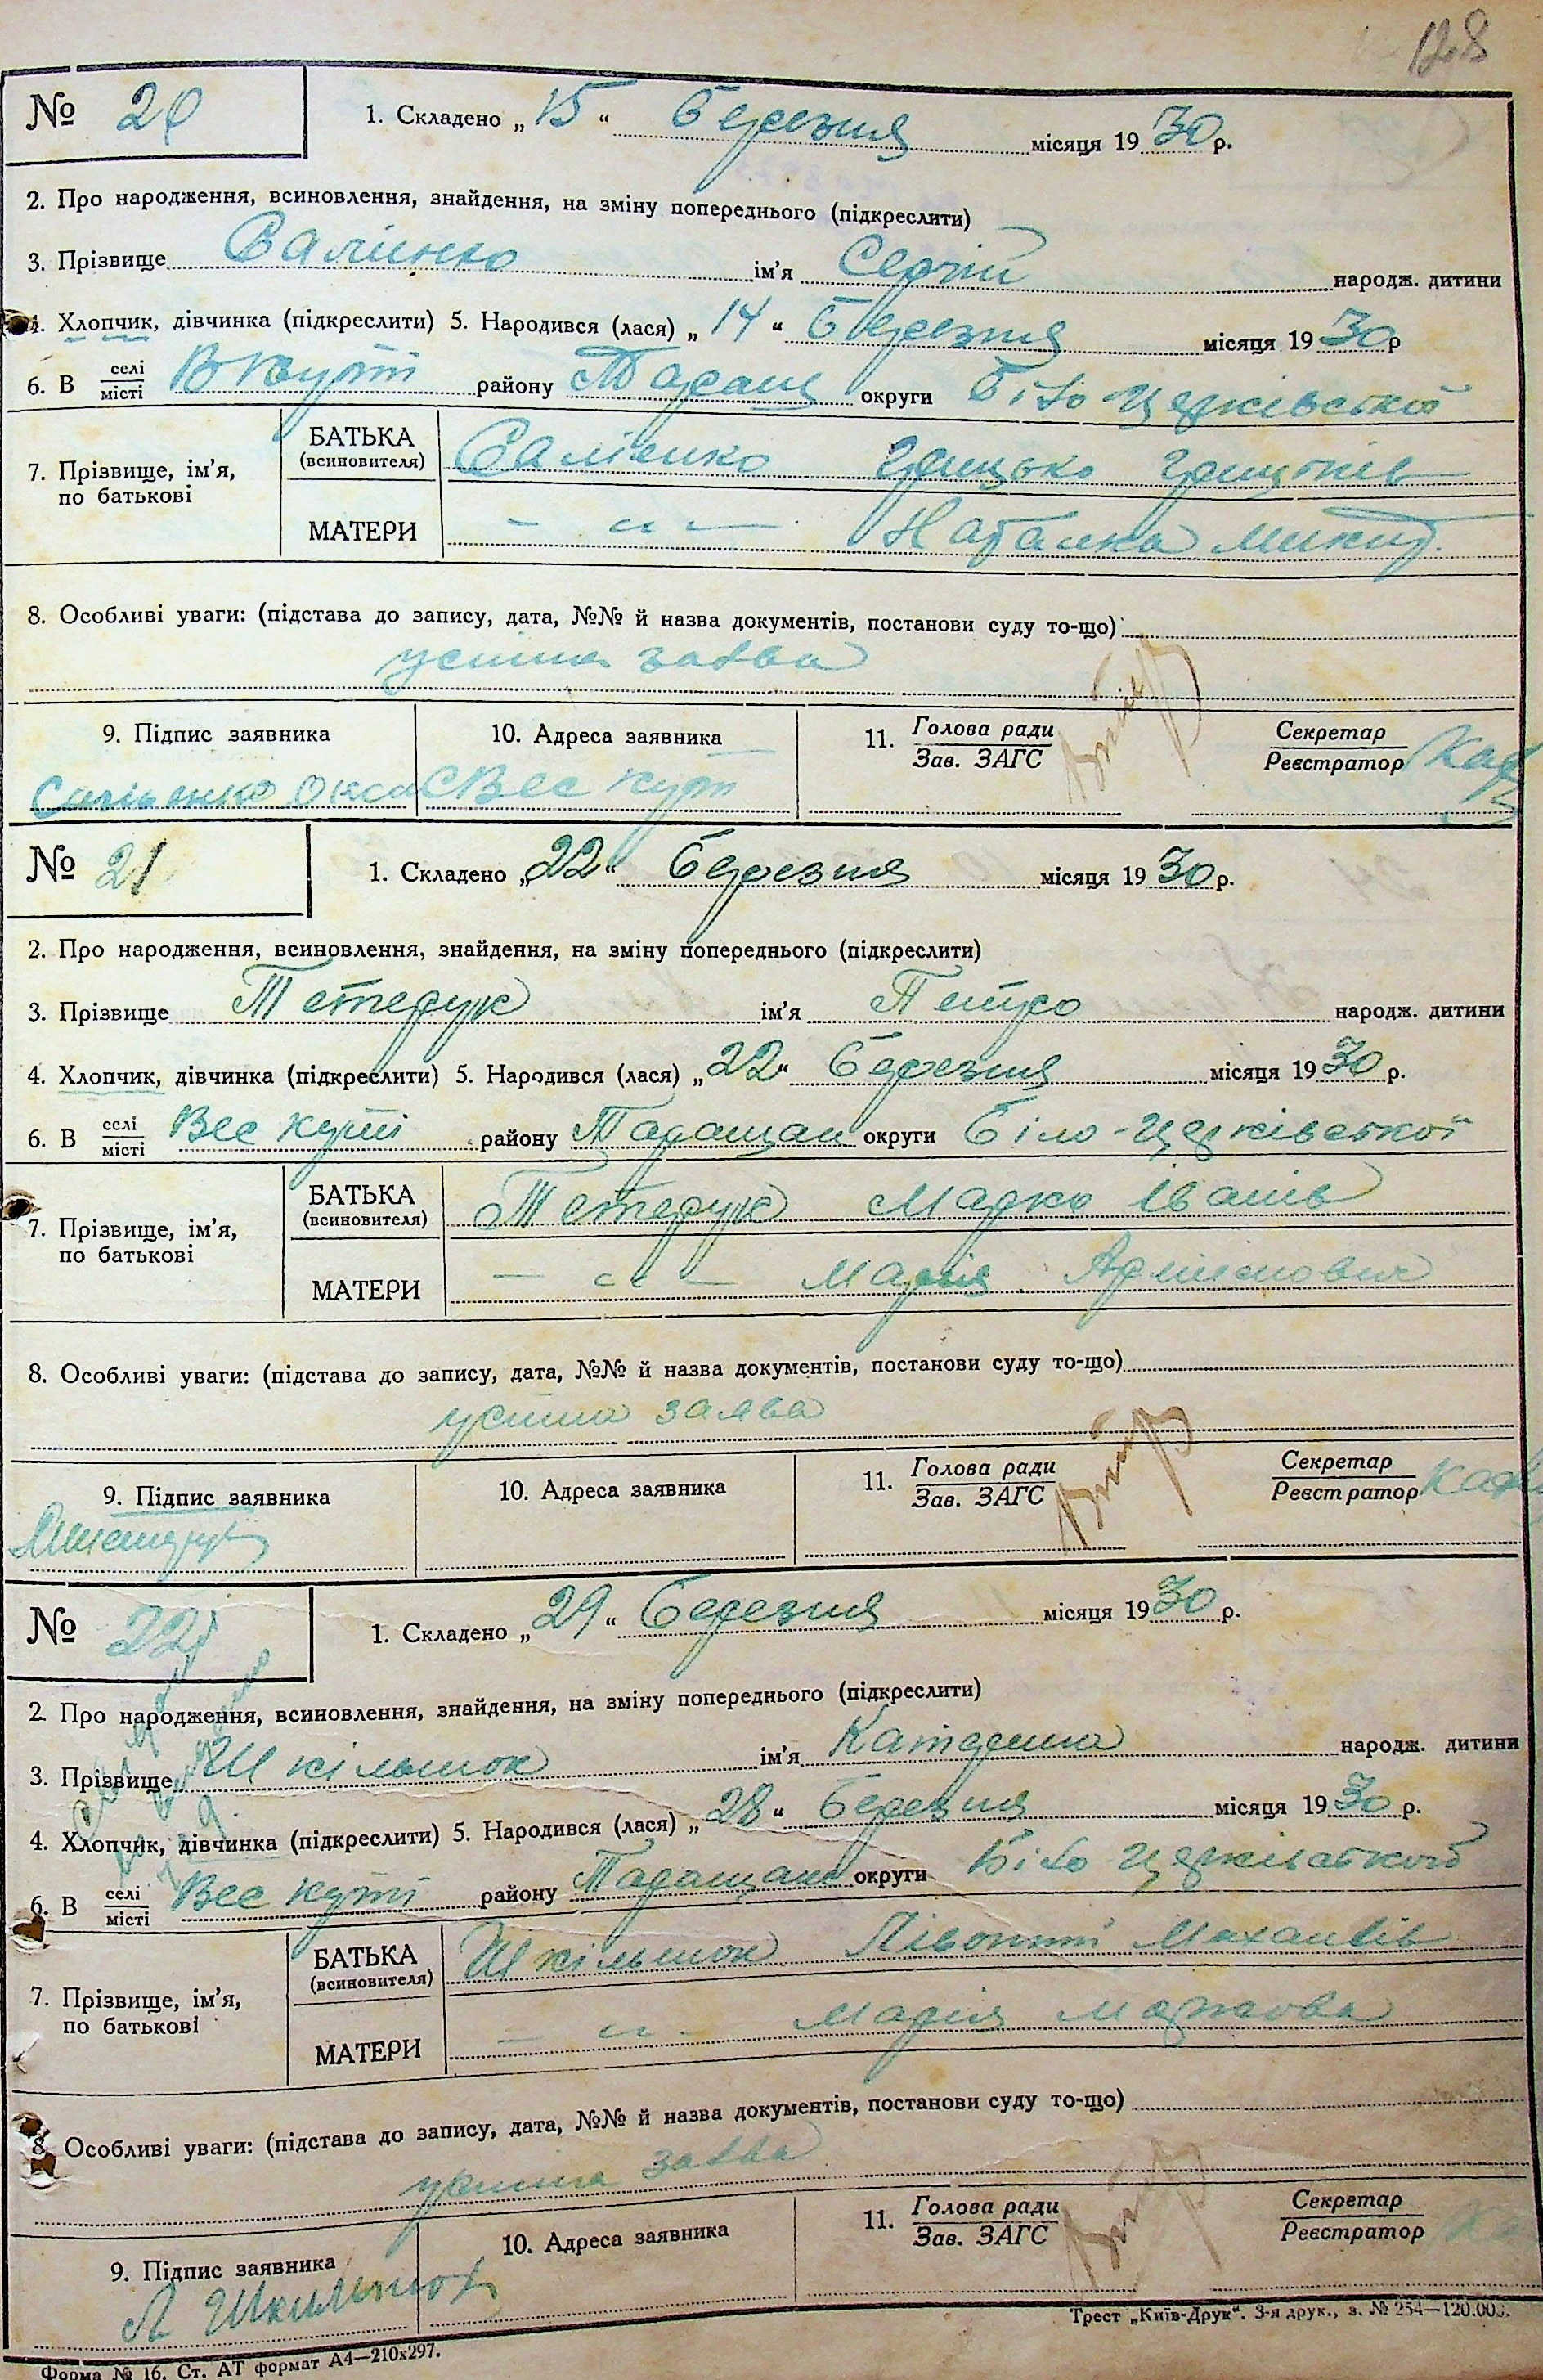 128
№ 20 1. Складено „15“ березня місяця 1930 р.
2. Про народження, всиновлення, знайдення, на зміну попереднього (підкреслити)
3. Прізвище Салієнко ім'я Сергій народж. дитини
4. Хлопчик, дівчинка (підкреслити) 5. Народився (лася) „14“ березня місяця 1930 р
6. В селі/місті В Куті району Таращ округи Біло Церківської
7. Прізвище, ім'я, по батькові
БАТЬКА (всиновителя) Салієнко Грицько Грицьків
МАТЕРИ — „ — Наталка Микит.
8. Особливі уваги: (підстава до запису, дата, №№ й назва документів, постанови суду то-що)
усина заява
9. Підпис заявника 10. Адреса заявника 11. Голова ради/Зав. ЗАГС Секретар/Реєстратор
С Вес Кут
№ 21 1. Складено „22“ березня місяця 1930 р.
2. Про народження, всиновлення, знайдення, на зміну попереднього (підкреслити)
3. Прізвище Тетерук ім'я Петро народж. дитини
4. Хлопчик, дівчинка (підкреслити) 5. Народився (лася) „22“ березня місяця 1930 р.
6. В селі/місті Вес куті району Таращан округи Біло-Церківської
7. Прізвище, ім'я, по батькові
БАТЬКА (всиновителя) Тетерук Марко Іванів
МАТЕРИ — „ — Марія
8. Особливі уваги: (підстава до запису, дата, №№ й назва документів, постанови суду то-що)
усина заява
9. Підпис заявника 10. Адреса заявника 11. Голова ради/Зав. ЗАГС Секретар/Реєстратор
№ 22 1. Складено „29“ березня місяця 1930 р.
2. Про народження, всиновлення, знайдення, на зміну попереднього (підкреслити)
3. Прізвище Шкільнюк ім'я Катерина народж. дитини
4. Хлопчик, дівчинка (підкреслити) 5. Народився (лася) „28“ березня місяця 1930 р.
6. В селі/місті Вес куті району Таращан округи Біло Церківської
7. Прізвище, ім'я, по батькові
БАТЬКА (всиновителя) Шкільнюк
МАТЕРИ — „ — Марія Маркова
8. Особливі уваги: (підстава до запису, дата, №№ й назва документів, постанови суду то-що)
усина заява
9. Підпис заявника 10. Адреса заявника 11. Голова ради/Зав. ЗАГС Секретар/Реєстратор
Трест „Київ-Друк“. 3-я друк., з. № 254—120.000.
Форма № 16. Ст. АТ формат А4—210х297.